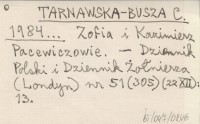 TARNAWSKA-BUSZA C.
1984... Zofia i Kazimierz
Pacewiczowie. — Dziennik
Polski i Dziennik Żołnierza
(Londyn) nr 51 (305) (22 XII):
13.